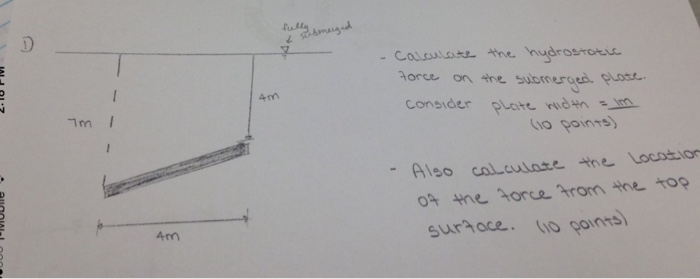 fully
submerged
1)
- Calculate the hydrostatic
force on the submerged plate.
Consider plate width = 1m
(10 points)
4m
7m
- Also calculate the location
of the force from the top
surface. (10 points)
4m